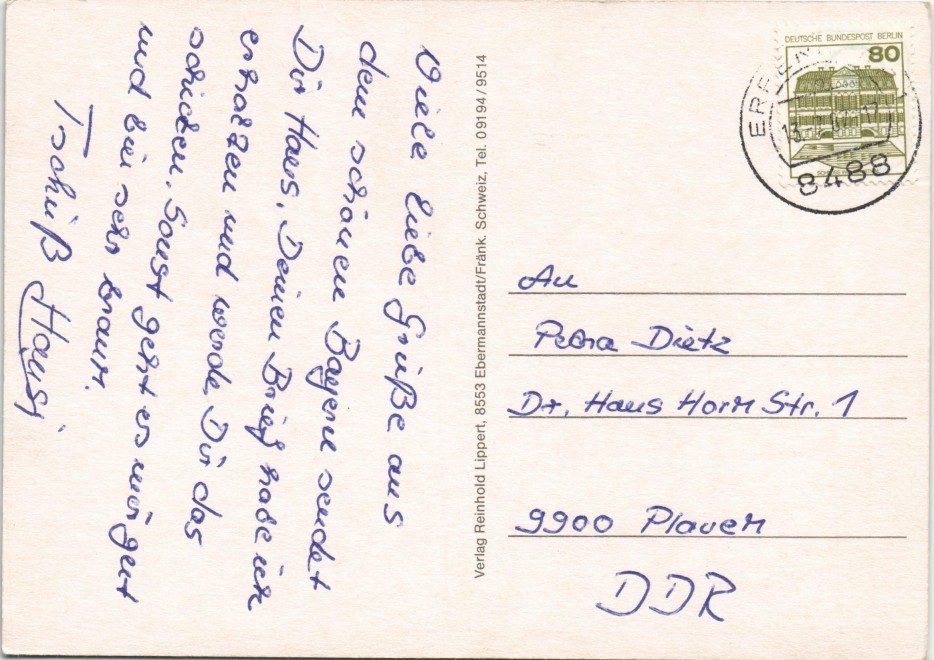 Viele liebe Grüße aus
dem schönen Bayern sendet
Dir Hans. Deinen Brief habe ich
erhalten und werde Dir das
schicken. Sonst geht es mir gut
und bin sehr braun.
Tschüß Hansi
Verlag Reinhold Lippert, 8553 Ebermannstadt/Fränk. Schweiz, Tel. 09194/9514
DEUTSCHE BUNDESPOST BERLIN
80
8488
An
Petra Dietz
Dr. Hans Horn Str. 1
9900 Plauen
DDR